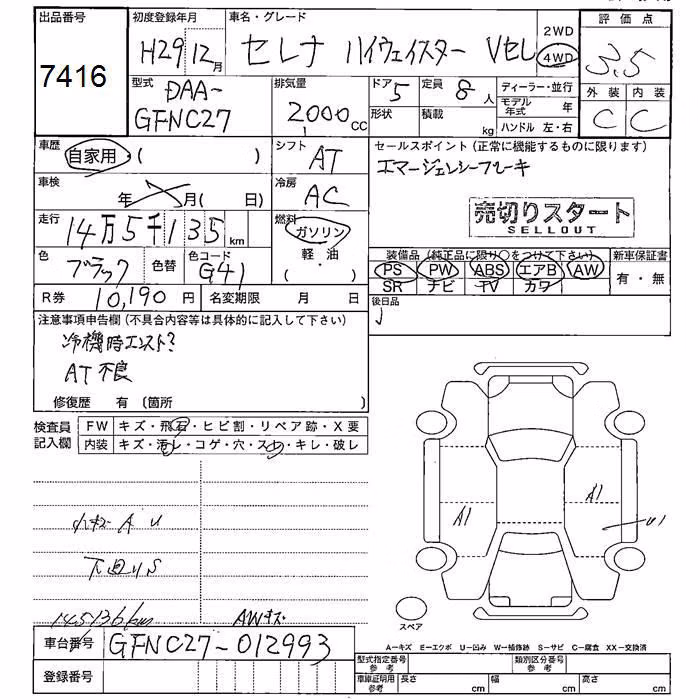 出品番号 初度登録年月 車名・グレード 2WD 評価点
7416 H29 12月 セレナ ハイウェイスター Vセレ 4WD 3.5
型式 DAA- 排気量 ドア 5 定員 8人 ディーラー・並行 外装 内装
GFNC27 2000cc 形状 積載 kg モデル年式 年 C C
ハンドル 左・右
車歴 自家用 ( ) シフト AT セールスポイント(正常に機能するものに限ります)
エマージェンシーブレーキ
車検 年 月( 日) 冷房 AC
売切りスタート
SELLOUT
走行 14万5千135km 燃料 ガソリン
軽・油
色 ブラック 色替 色コード G41 装備品(純正品に限り○をつけて下さい) 新車保証書
PS PW ABS エアB AW 有・無
SR ナビ TV カワ
R券 10,190円 名変期限 月 日 後日品
注意事項申告欄(不具合内容等は具体的に記入して下さい)
冷機時エンスト?
AT不良
修復歴 有(箇所 )
検査員記入欄 FW キズ・飛石・ヒビ割・リペア跡・X要
内装 キズ・汚レ・コゲ・穴・スレ・キレ・破レ
小キズ A U
A1 A1 U1
下廻りS
145136km AWキズ
スペア
車台番号 GFNC27-012993
A-キズ E-エクボ U-凹み W-補修跡 S-サビ C-腐食 XX-交換済
型式指定番号 参考 類別区分番号 参考
登録番号 車庫証明用 参考 長さ cm 幅 cm 高さ cm